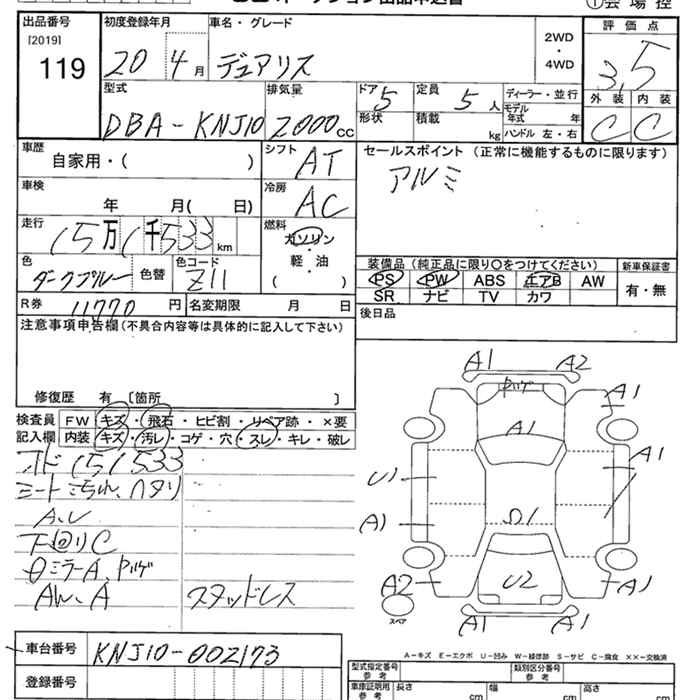 ①会場控
出品番号 初度登録年月 車名・グレード 評価点
[2019]
119 20年4月 デュアリス 2WD・4WD 3.5
型式 排気量 ドア 定員 ディーラー・並行 外装 内装
DBA-KNJ10 2000cc 5 5人 モデル年式 年 C C
形状 積載 kg ハンドル 左・右
車歴 シフト セールスポイント (正常に機能するものに限ります)
自家用・( ) AT アルミ
車検 冷房
年 月( 日) AC
走行 燃料
15万1千533km ガソリン
軽・油
( )
色 色替 色コード
ダークブルー Z11
装備品(純正品に限り〇をつけてください) 新車保証書
PS PW ABS エアB AW 有・無
SR ナビ TV カワ
R券 11770円 名変期限 月 日 後日品
注意事項申告欄(不具合内容等は具体的に記入して下さい)
修復歴 有 〔箇所 〕
検査員 FW キズ・飛石・ヒビ割・リペア跡・×要
記入欄 内装 キズ・汚レ・コゲ・穴・スレ・キレ・破レ
オド151533
A、U
下回りC
AW、A スタッドレス
A1 A2
A1
A1
A1
U1
A1
U2
A2 A1
スペア A1 A1
A-キズ E-エクボ U-凹み W-補修跡 S-サビ C-腐食 ××-交換済
車台番号 KNJ10-002173
登録番号
型式指定番号 参考 類別区分番号 参考
車庫証明用 参考 長さ cm 幅 cm 高さ cm